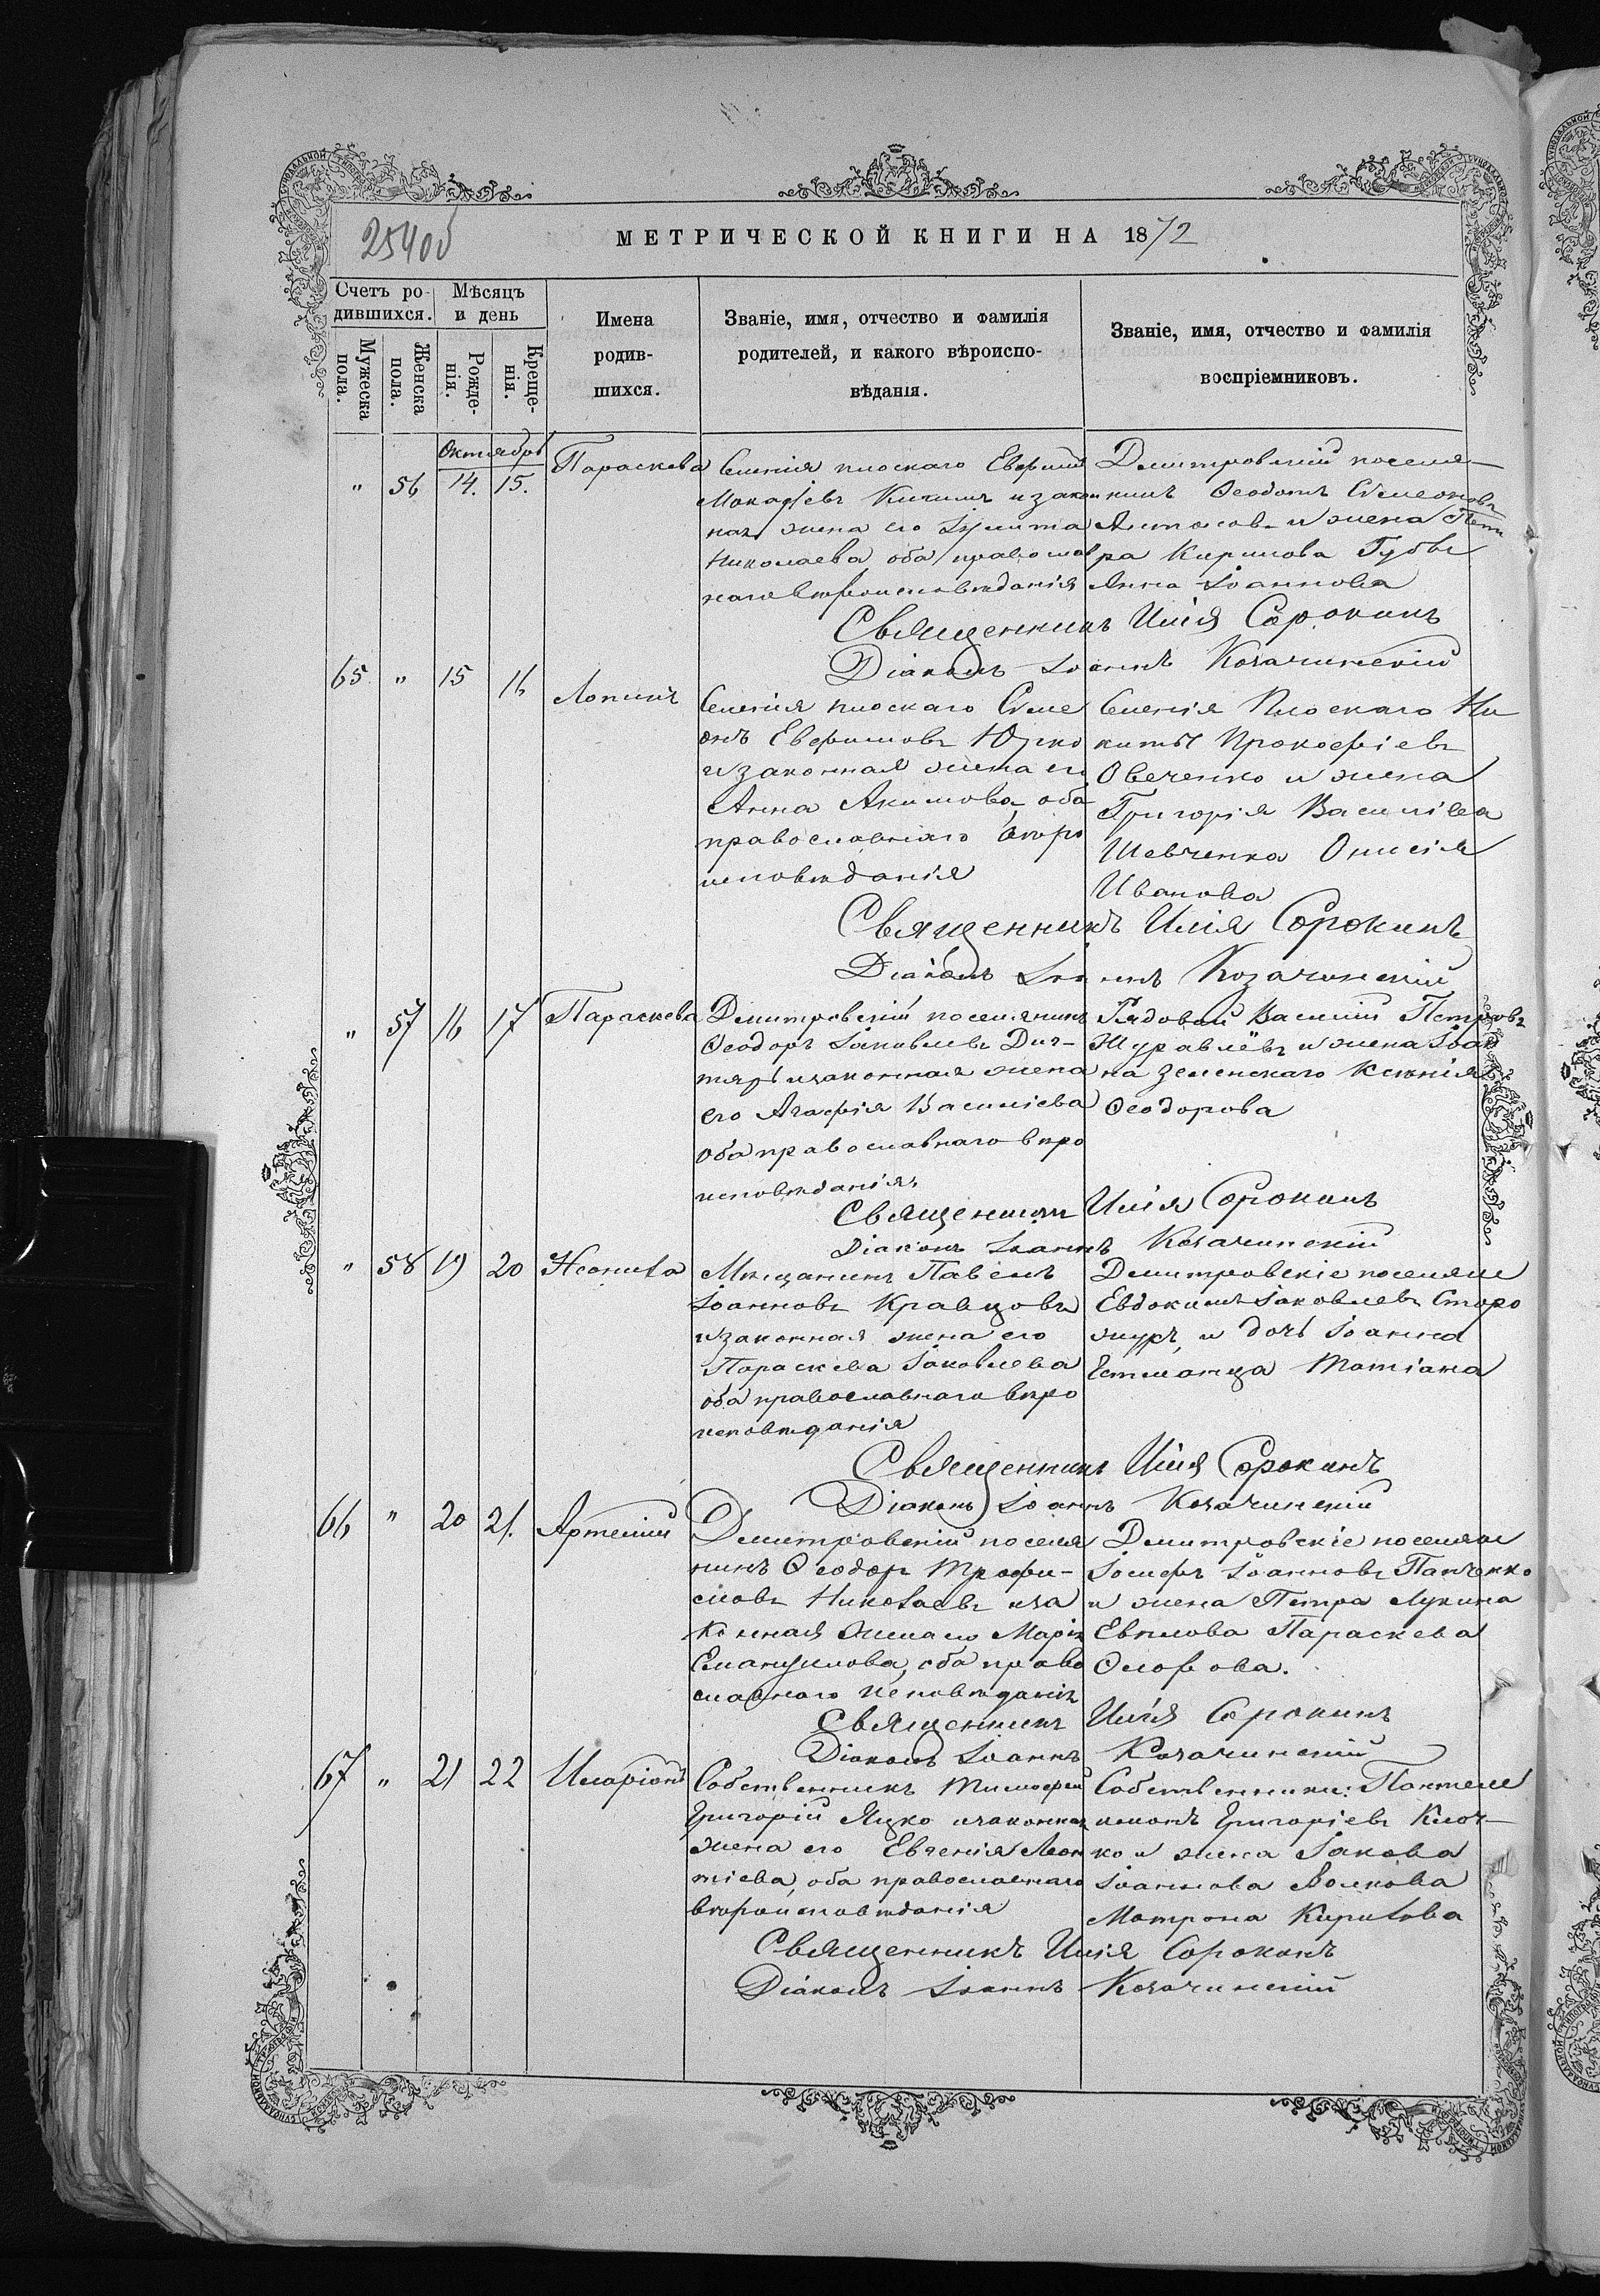 254об
МЕТРИЧЕСКОЙ КНИГИ НА 1872
Счетъ ро-
дившихся.
Мѣсяцъ
и день
Имена
родив-
шихся.
Званіе, имя, отчество и фамилія
родителей, и какого вѣроиспо-
вѣданія.
Званіе, имя, отчество и фамилія
воспріемниковъ.
Мужеска
пола.
Женска
пола.
Рожде-
нія.
Креще-
нія.
Октябрь
" 56 14. 15.
Параскева
Селенія плоскаго Ефимій
и закон
ная жена его Іулита
Николаева, оба православ
наго вѣроисповѣданія
Димитровскій поселя-
нинъ Ѳеодотъ Симеоновъ
и жена Пет
ра Кирилова Губы
Анна Іоаннова
Священникъ Илія Сорокинъ
Діаконъ Іоаннъ Козачинскій
65 " 15 16
Логинъ
Селенія плоскаго Симе
онъ Евфимовъ Юрко
и законная жена его
Анна Акимова, оба
православнаго вѣро
исповѣданія
Селенія Плоскаго Ни
кита Прокофіевъ
Овеченко и жена
Григорія Василіева
Шевченка Онисія
Иванова
Священникъ Илія Сорокинъ
Діаконъ Іоаннъ Козачинскій
" 57 16 17
Параскева
Димитровскій поселянинъ
Ѳеодоръ Іаковлевъ Дих-
тярь и законная жена
его Агафія Василіева
оба православнаго вѣро
исповѣданія
Рядовой Василій Петровъ
Журавлёвъ и жена Іоан
на Зеленскаго Ксенія
Ѳеодорова
Священникъ Илія Сорокинъ
Діаконъ Іоаннъ Козачинскій
" 58 19 20
Неонила
Мѣщанинъ Павелъ
Іоанновъ Кравцовъ
и законная жена его
Параскева Іаковлева
оба православнаго вѣро
исповѣданія
Димитровскіе поселяне
Евдокимъ Іаковлевъ Старо
жукъ, и дочь Іоанна
Татіана
Священникъ Илія Сорокинъ
Діаконъ Іоаннъ Козачинскій
66 " 20 21.
Артемій
Димитровскій поселя
нинъ Ѳеодоръ Трофи-
мовъ Николаевъ и за
конная жена его Марія
Емануилова, оба право
славнаго исповѣданія
Димитровскіе поселяне
Іосифъ Іоанновъ Панченко
и жена Петра Лукина
Параскева
Священникъ Илія Сорокинъ
Діаконъ Іоаннъ Козачинскій
67 " 21 22
Иларіонъ
Собственникъ Тимофей
Григорій Яцко и законная
жена его Евгенія Леон
тіева, оба православнаго
вѣроисповѣданія
Собственники: Пантеле
имонъ Григоріевъ Клоч-
ко и жена Іакова
Іоаннова Волкова
Матрона Кирилова
Священникъ Илія Сорокинъ
Діаконъ Іоаннъ Козачинскій